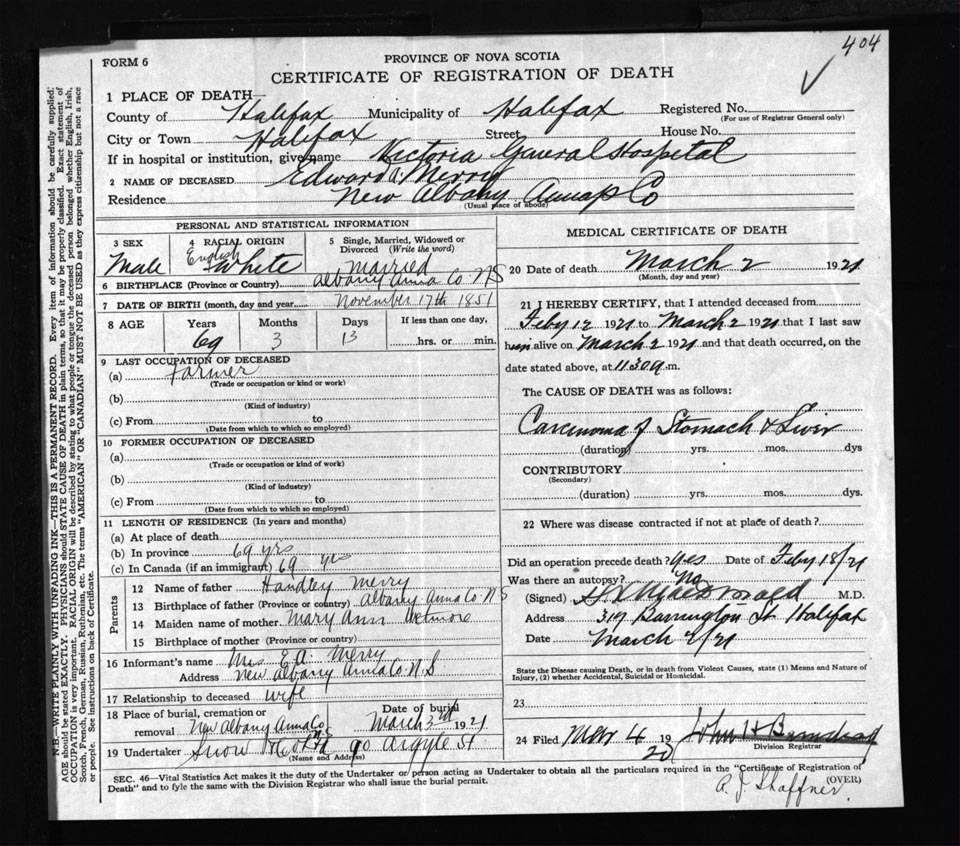 404
FORM 6
PROVINCE OF NOVA SCOTIA
CERTIFICATE OF REGISTRATION OF DEATH
1 PLACE OF DEATH—
County of Halifax Municipality of Halifax Registered No.
(For use of Registrar General only)
City or Town Halifax Street House No.
If in hospital or institution, give name Victoria General Hospital
2 NAME OF DECEASED Edward A. Merry
Residence New Albany Annap Co
(Usual place of abode)
PERSONAL AND STATISTICAL INFORMATION
3 SEX Male
4 RACIAL ORIGIN English White
5 Single, Married, Widowed or Divorced (Write the word) married
6 BIRTHPLACE (Province or Country) Albany Anna Co N S
7 DATE OF BIRTH (month, day and year) November 17th 1851
8 AGE Years Months Days If less than one day,
69 3 13 hrs. or min.
9 LAST OCCUPATION OF DECEASED
(a) Farmer
(Trade or occupation or kind of work)
(b)
(Kind of industry)
(c) From to
(Date from which to which so employed)
10 FORMER OCCUPATION OF DECEASED
(a)
(Trade or occupation or kind of work)
(b)
(Kind of industry)
(c) From to
(Date from which to which so employed)
11 LENGTH OF RESIDENCE (In years and months)
(a) At place of death
(b) In province 69 yrs
(c) In Canada (if an immigrant) 69 yrs
Parents
12 Name of father Handley Merry
13 Birthplace of father (Province or country) Albany Anna Co N S
14 Maiden name of mother Mary Ann
15 Birthplace of mother (Province or country)
16 Informant's name Mrs E. A. Merry
Address New Albany Anna Co N.S
17 Relationship to deceased wife
18 Place of burial, cremation or removal New Albany Anna Co N S
Date of burial March 3rd 1921
19 Undertaker Snow 90 Argyle St
(Name and Address)
MEDICAL CERTIFICATE OF DEATH
20 Date of death March 2 1921
(Month, day and year)
21 I HEREBY CERTIFY, that I attended deceased from
Feby 12 1921 to March 2 1921 that I last saw
him alive on March 2 1921 and that death occurred, on the
date stated above, at 11.30 a.m.
The CAUSE OF DEATH was as follows:
Carcinoma of Stomach & Liver
(duration) yrs. mos. dys
CONTRIBUTORY
(Secondary)
(duration) yrs. mos. dys.
22 Where was disease contracted if not at place of death?
Did an operation precede death? Yes Date of Feby 18/21
Was there an autopsy? No
(Signed) M.D.
Address 317 Barrington St Halifax
Date March 2/21
State the Disease causing Death, or in death from Violent Causes, state (1) Means and Nature of
Injury, (2) whether Accidental, Suicidal or Homicidal.
23
24 Filed Mar 4 1920 John H
Division Registrar
A. J. Shaffner
(OVER)
SEC. 46—Vital Statistics Act makes it the duty of the Undertaker or person acting as Undertaker to obtain all the particulars required in the "Certificate of Registration of
Death" and to fyle the same with the Division Registrar who shall issue the burial permit.
N.B.—WRITE PLAINLY WITH UNFADING INK—THIS IS A PERMANENT RECORD. Every item of information should be carefully supplied.
AGE should be stated EXACTLY. PHYSICIANS should STATE CAUSE OF DEATH in plain terms, so that it may be properly classified. Exact statement of
OCCUPATION is very important. RACIAL ORIGIN will be described by stating to what people or tongue the deceased person belonged whether English, Irish,
Scotch, French, German, Russian, Ruthenian, etc. The terms "AMERICAN" OR "CANADIAN" MUST NOT BE USED as they express citizenship but not a race
or people. See instructions on back of Certificate.